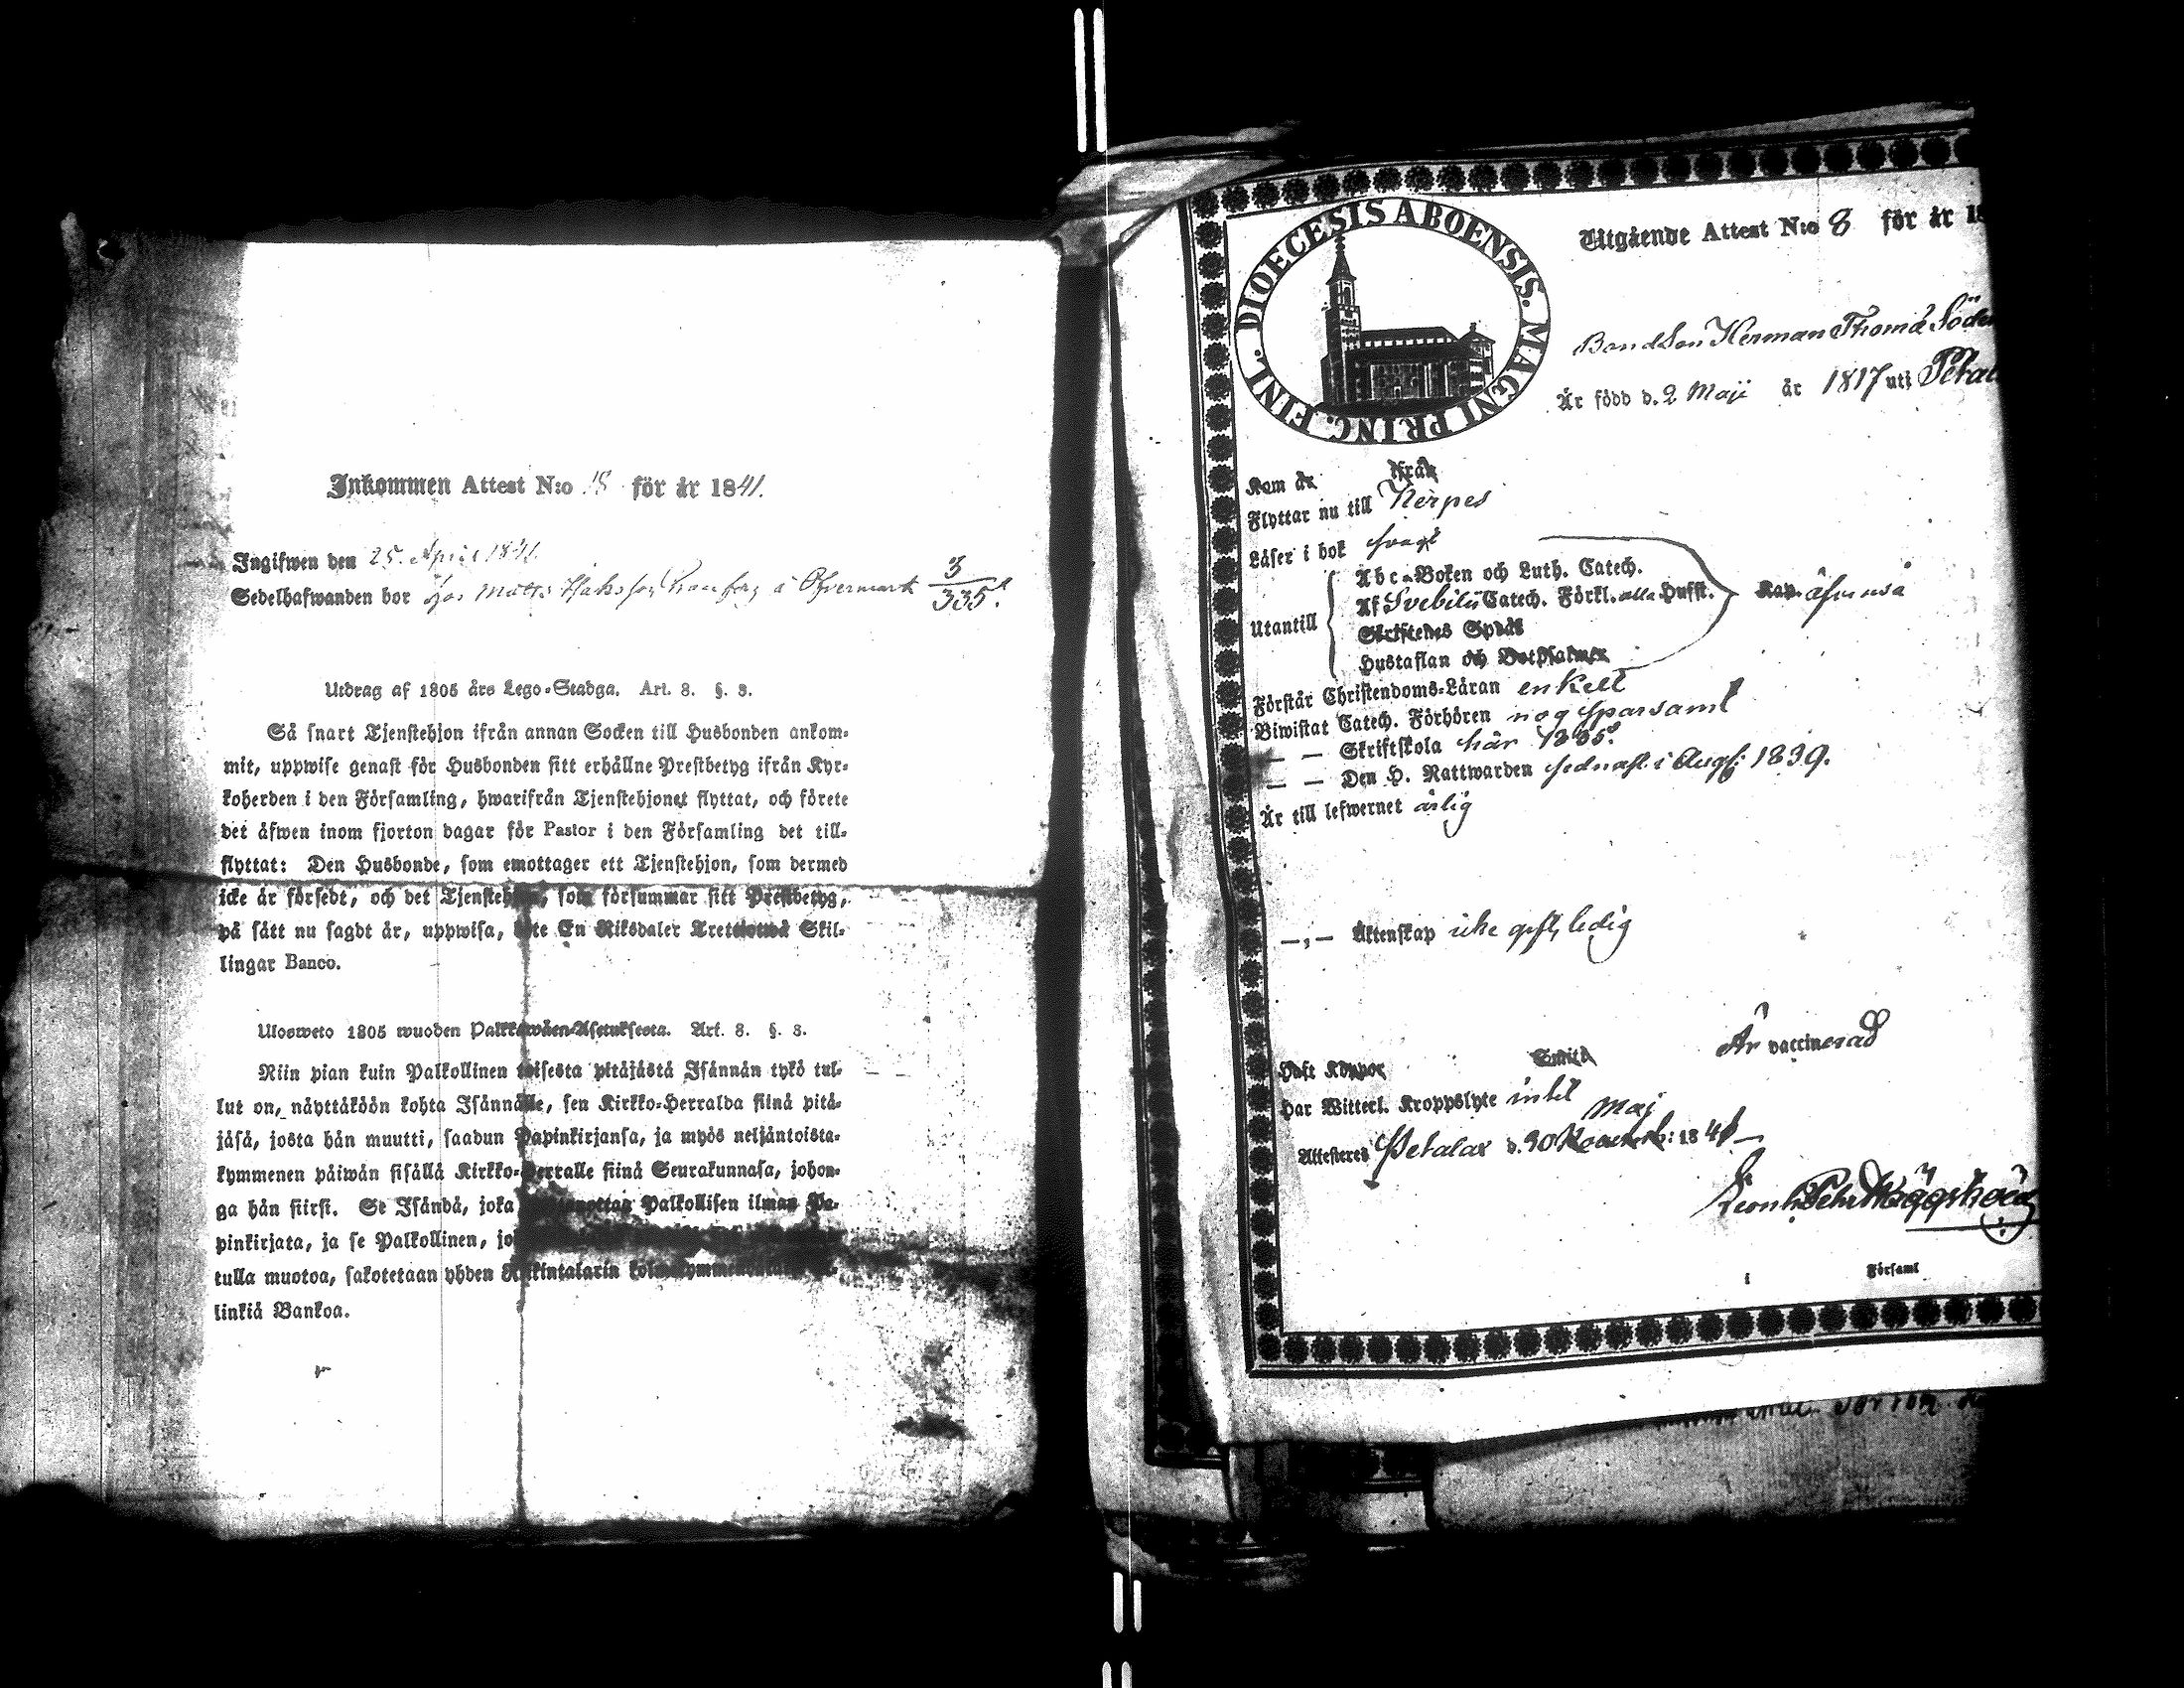 Inkommen Attest N:o 18 för år 1841.
Ingifwen den 25. April 1841.
Sedelhafwanden bor hos Matts å Öfvermark 3/335.
Utdrag af 1805 års Lego-Stadga. Art. 3. §. 3.
Så snart Tjenstehjon ifrån annan Socken till Husbonden ankom-
mit, uppwise genast för Husbonden sitt erhållne Prestbetyg ifrån Kyr-
koherden i den Församling, hwarifrån Tjenstehjonet flyttat, och förete
det äfwen inom fjorton dagar för Pastor i den Församling det till-
flyttat: Den Husbonde, som emottager ett Tjenstehjon, som dermed
icke är försedt, och det som försummar sitt Prestbetyg,
på sätt nu sagdt är, uppwisa, En Riksdaler Skil-
lingar Banco.
Ulosweto 1805 wuoden Palkkawäen-Asetuksesta. Art. 3. §. 3.
Niin pian kuin Palkollinen toisesta pitäjästä Isännän tykö tul-
lut on, näyttäköön kohta Isännälle, sen Kirkko-Herralda siinä pitä-
jäsä, josta hän muutti, saadun Papinkirjansa, ja myös neljäntoista-
kymmenen päiwän sisällä Kirkko-Herralle siinä Seurakunnasa, johon-
ga hän siirsi. Se Isändä, joka Palkollisen ilman Pa-
pinkirjata, ja se Palkollinen,
tulla muotoa, sakotetaan yhden
linkiä Bankoa.
DIOECESIS ABOENSIS. MAGNI PRINC. FINL.
Utgående Attest N:o 8 för år 18
Bondson Herman Thomæ Söder
Är född d. 2 Maji år 1817 uti Petal
Kom är ifrån
Flyttar nu till Nerpes
Läser i bok svagt
Utantill
Abc-Boken och Luth. Catech.
Af Svebilii Catech. Förkl. alla Hufst.
Skriftenes Språk
Hustaflan och Botpsalmer
Kap. äfvenså
Förstår Christendoms-Läran enkelt
Biwistat Catech. Förhören nog sparsamt
— — Skriftskola här 1835.
— — Den H. Nattwarden sednast i Aug: 1839.
Är till lefwernet ärlig
—,— Äktenskap icke gift, ledig
Haft Koppor
Är vaccinerad
Har Witterl. Kroppslyte intet
Maj
Attesteres Petalax d. 30 184
Häggström
i Församl